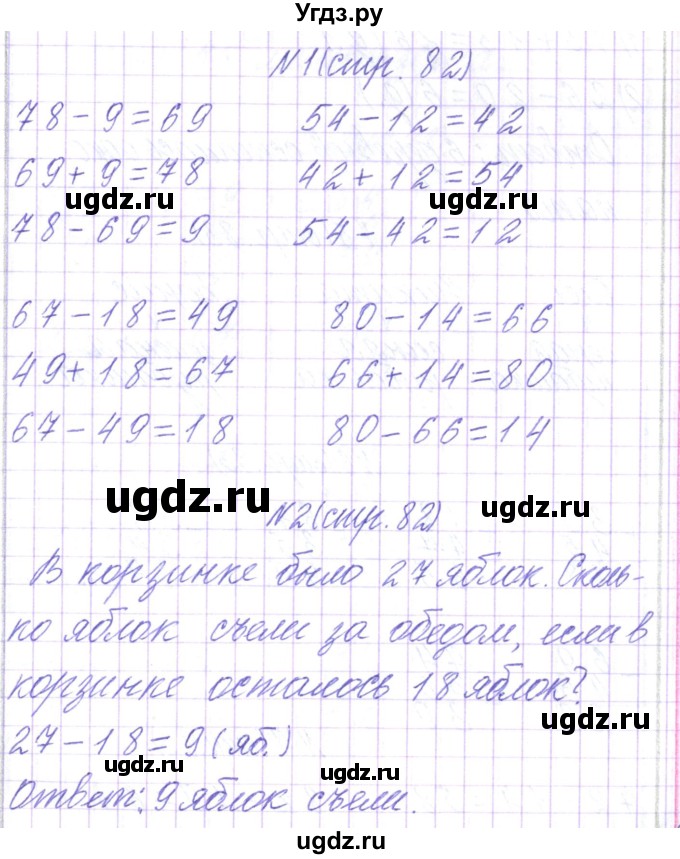 Угдз.ру
№1(стр. 82)
78-9=69 54-12=42
69+9=78 42+12=54
ugdz.ru ugdz.ru
78-69=9 54-42=12
67-18=49 80-14=66
49+18=67 66+14=80
67-49=18 80-66=14
ugdz.ru ugdz.ru
№2(стр. 82)
В корзинке было 27 яблок. Сколь-
ко яблок съели за обедом, если в
корзинке осталось 18 яблок?
ugdz.ru ugdz.ru
27-18=9 (яб.)
ugdz.ru ugdz.ru
Ответ: 9 яблок съели.
ugdz.ru